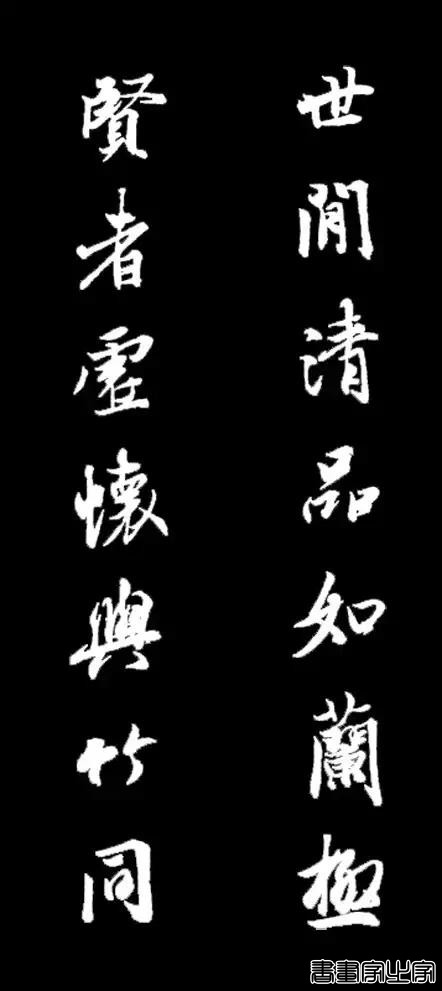 世間清品如蘭極
賢者虛懷與竹同
書畫家之家